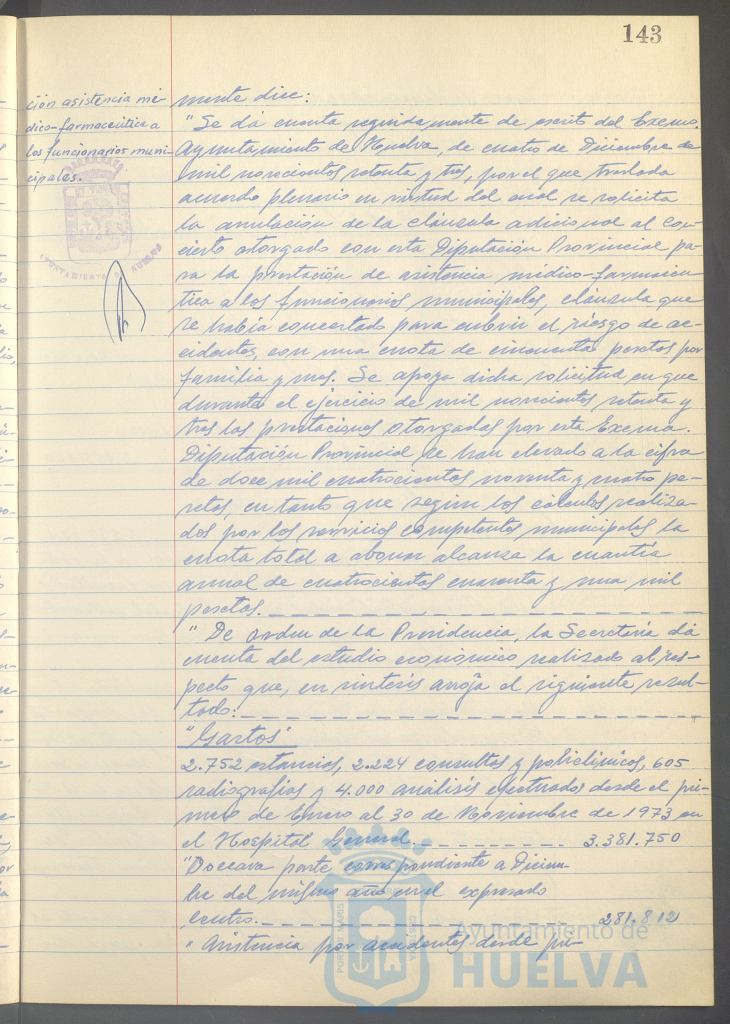 143
ción asistencia mé-
dico-farmaceútica a
los funcionarios muni-
cipales.
AYUNTAMIENTO DE HUELVA
mente dice:
"Se dá cuenta seguidamente de escrito del Excmo.
Ayuntamiento de Huelva, de cuatro de Diciembre de
mil novecientos setenta y tres, por el que traslada
acuerdo plenario en virtud del cual se solicita
la anulación de la cláusula adicional al con-
cierto otorgado con esta Diputación Provincial pa-
ra la prestación de asistencia médico-farmaceu-
tica a los funcionarios municipales, cláusula que
se había concertado para cubrir el riesgo de ac-
cidentes, con una cuota de cincuenta pesetas por
familia y mes. Se apoya dicha solicitud en que
durante el ejercicio de mil novecientos setenta y
tres las prestaciones otorgadas por esta Excma.
Diputación Provincial se han elevado a la cifra
de doce mil cuatrocientos noventa y cuatro pe-
setas, en tanto que según los cálculos realiza-
dos por los servicios competentes municipales la
cuota total a abonar alcanza la cuantía
anual de cuatrocientos cuarenta y una mil
pesetas.
"De orden de la Presidencia, la Secretaría dá
cuenta del estudio económico realizado al res-
pecto que, en síntesis arroja el siguiente resul-
tado:
"Gastos"
2.752 estancias, 2.224 consultas y policlínicos, 605
radiografías y 4.000 análisis efectuados desde el pri-
mero de Enero al 30 de Noviembre de 1973 en
el Hospital General. 3.381.750
"Doceava parte correspondiente a Diciem-
bre del mismo año en el expresado
centro. 281.812
"Asistencia por accidentes desde pri-
Ayuntamiento de
HUELVA